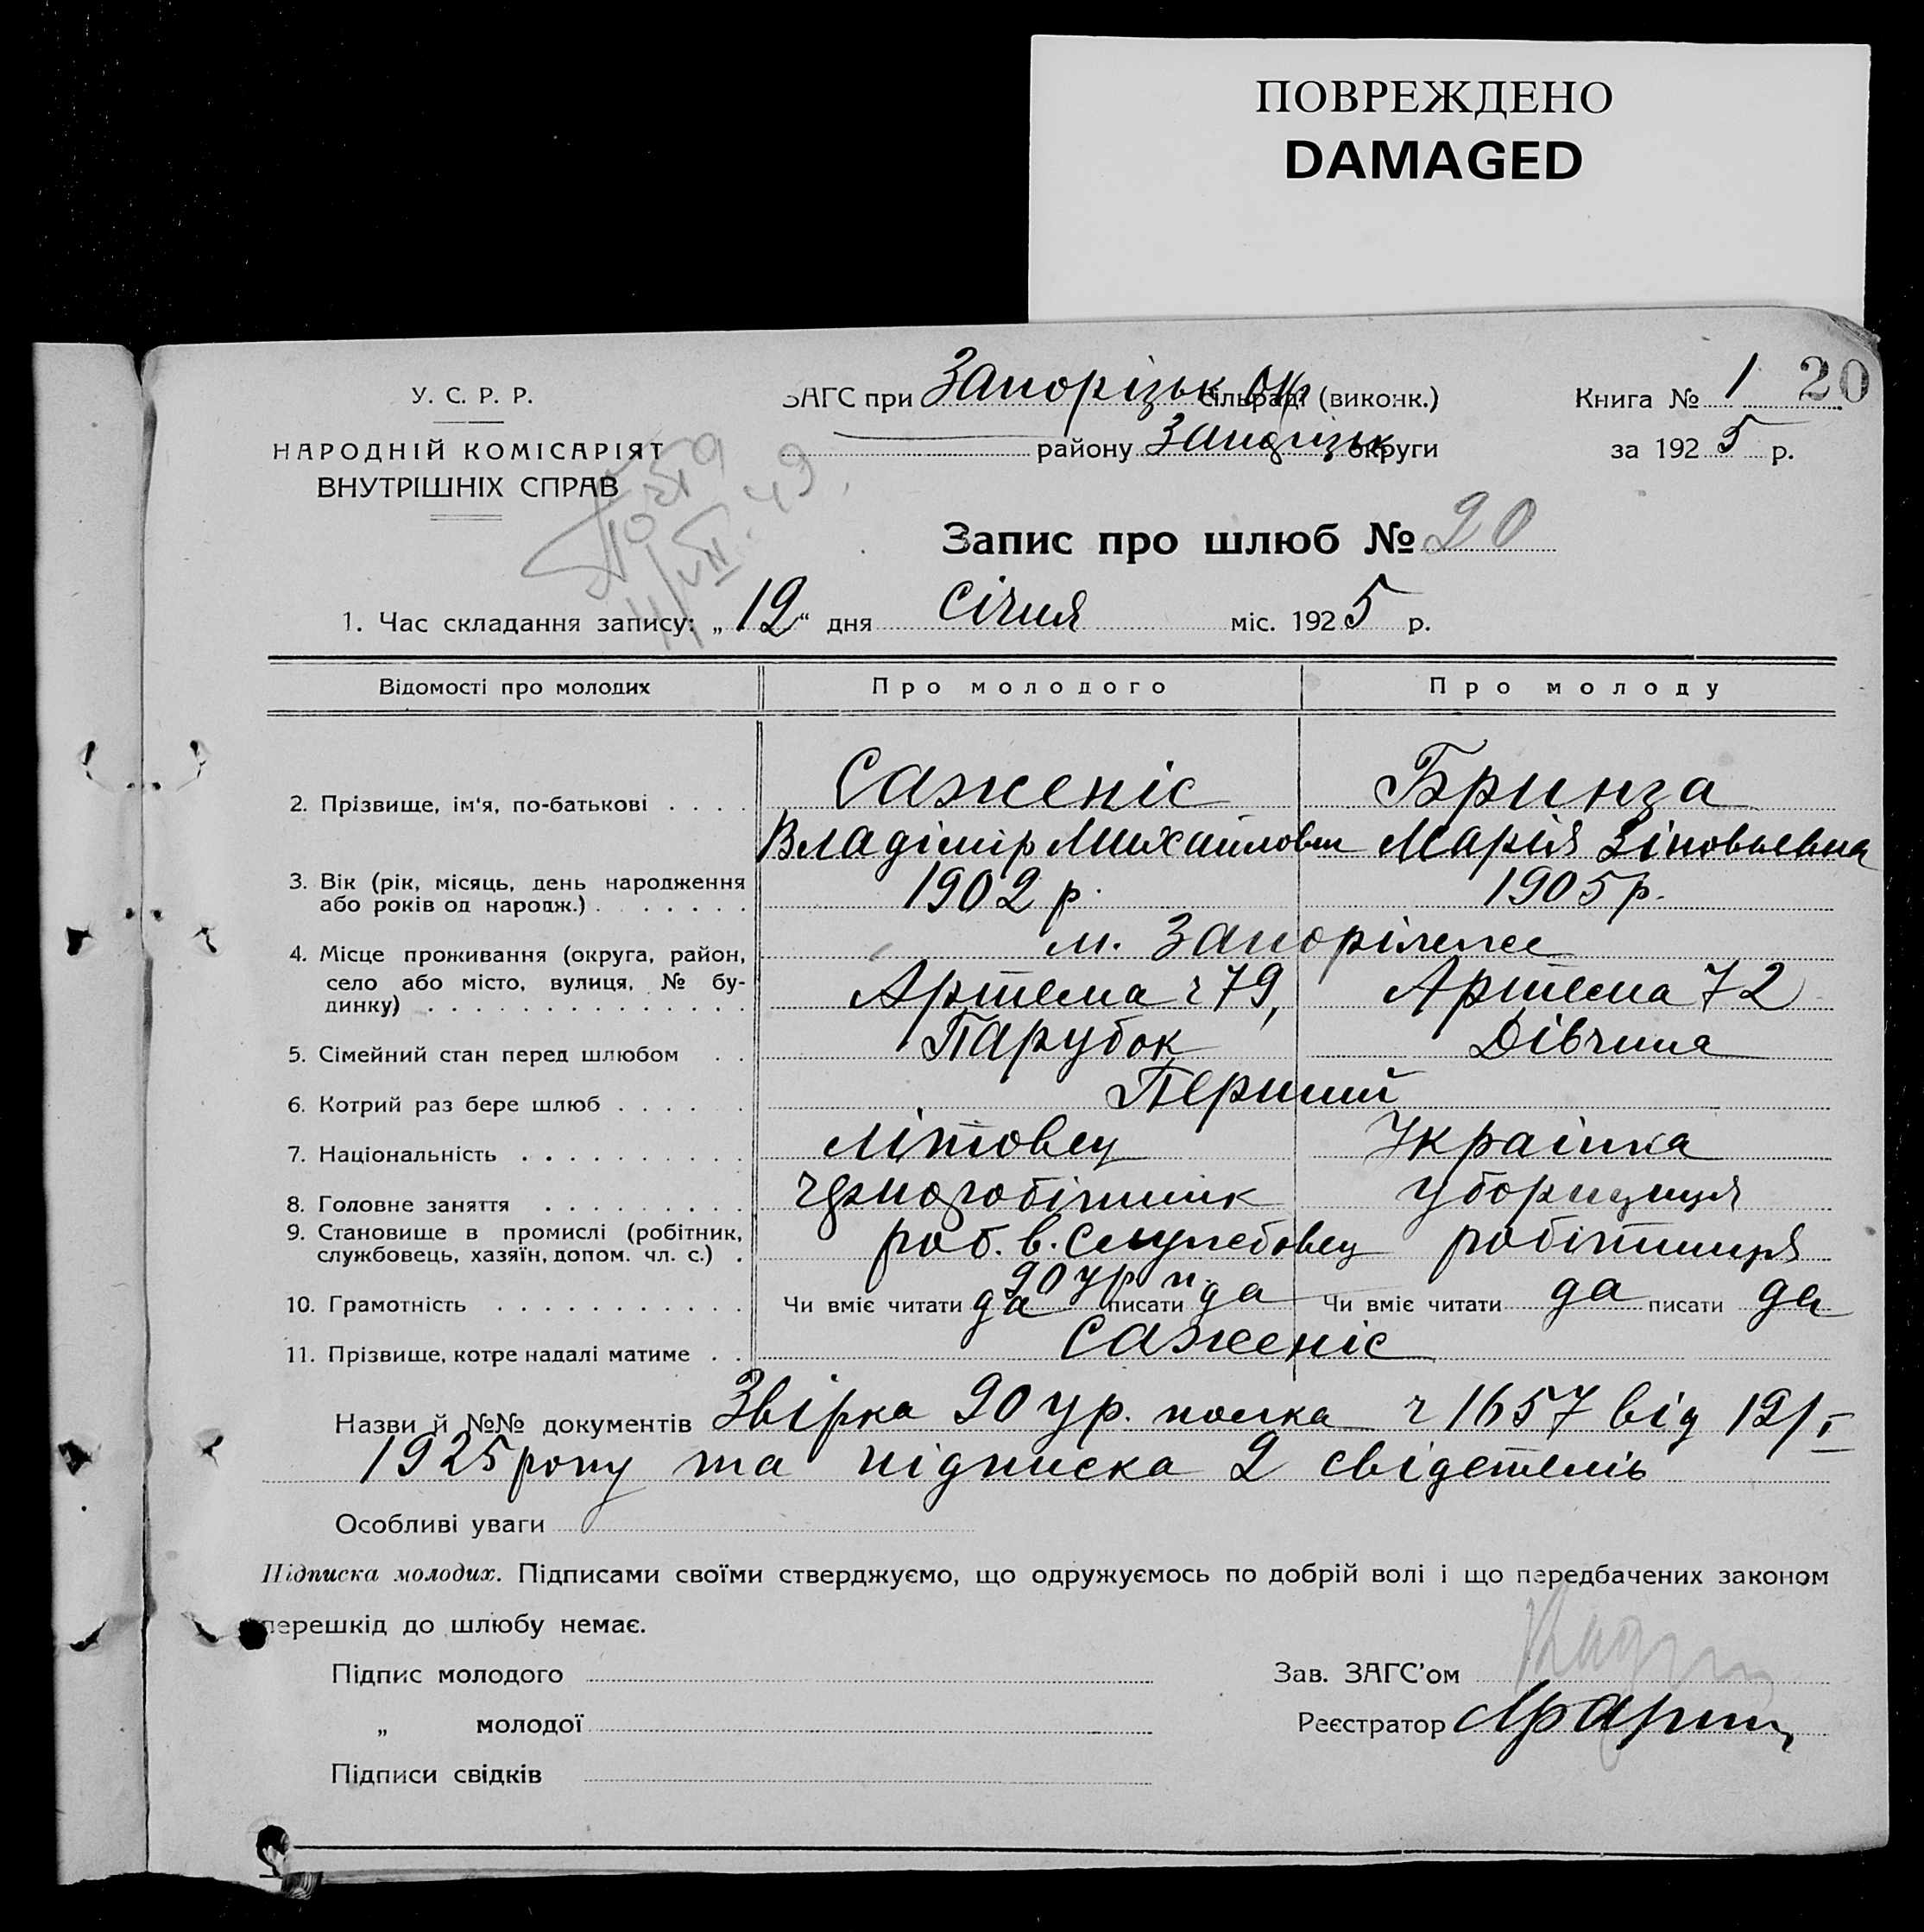 ПОВРЕЖДЕНО
DAMAGED
У. С. Р. Р.
НАРОДНІЙ КОМІСАРІЯТ
ВНУТРІШНІХ СПРАВ
ЗАГС при Запорізьк Окр сільраді (виконк.)
району Запорізьк округи
Книга № 1 20
за 1925 р.
Запис про шлюб № 20
1. Час складання запису: „12“ дня Січня міс. 1925 р.
Відомості про молодих Про молодого Про молоду
2. Прізвище, ім'я, по-батькові . . . . Саженіс Бринза
Владімір Михайлович Марія Зіновьевна
3. Вік (рік, місяць, день народження
або років од народж.) . . . . . . . 1902 р. 1905 р.
4. Місце проживання (округа, район,
село або місто, вулиця, № бу-
динку) . . . . . . . . . . . . . .
м. Запоріжже
Артема ч 79, Артема 72
5. Сімейний стан перед шлюбом . . Парубок Дівчина
6. Котрий раз бере шлюб . . . . . . Перший
7. Національність . . . . . . . . . . Літовец Украінка
8. Головне заняття . . . . . . . . . чорноробітник уборщиця
9. Становище в промислі (робітник,
службовець, хазяїн, допом. чл. с.) . роб. в. Службовец робітниця
90 ур п.
10. Грамотність . . . . . . . . . . . . Чи вміє читати да писати да Чи вміє читати да писати да
11. Прізвище, котре надалі матиме . . Саженіс
Назви й №№ документів Звірка 90 ур. полка ч 1657 від 12/I
1925 року та підписка 2 свідетелів
Особливі уваги
Підписка молодих. Підписами своїми стверджуємо, що одружуємось по добрій волі і що передбачених законом
перешкід до шлюбу немає.
Підпис молодого
Зав. ЗАГС'ом
„ молодої
Реєстратор
Підписи свідків